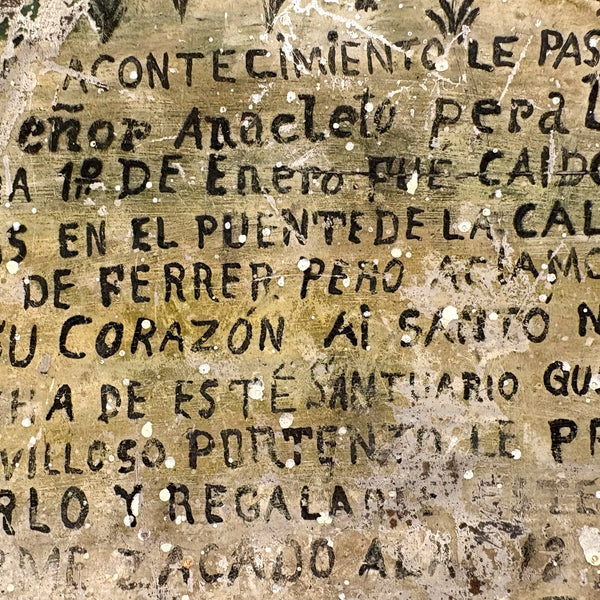 ACONTECIMIENTO LE PAS
eñor Anacleto pera L
A 1º DE Enero FUE CAIDO
OS EN EL PUENTE DE LA CAL
DE FERRER. PERO ACLAMO
SU CORAZÓN Al SANTO N
HA DE ESTÉ SANTUARIO QU
VILLOSO PORTENTO LE PR
RLO Y REGALA